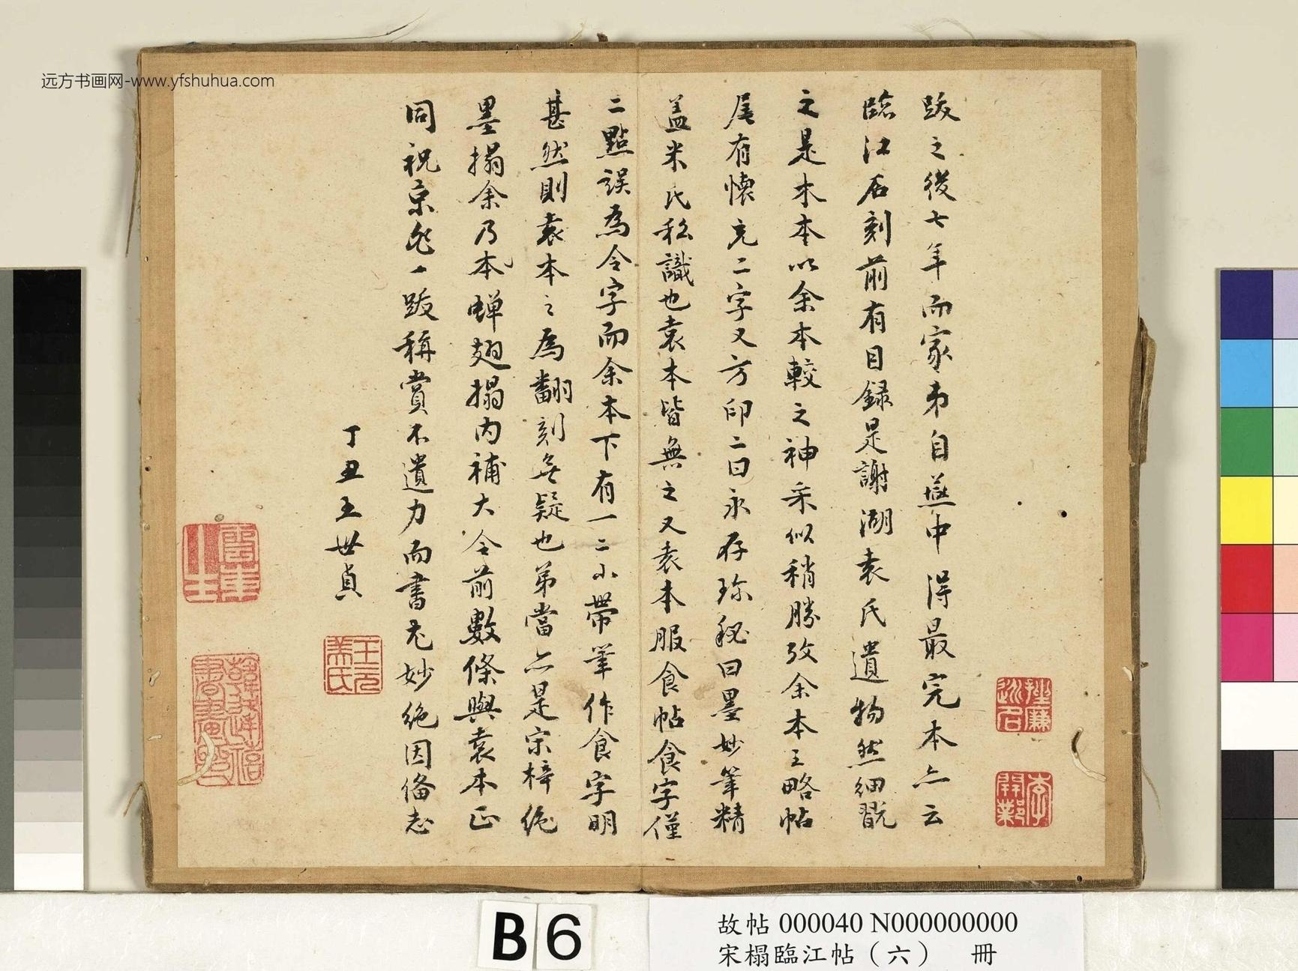 远方书画网-www.yfshuhua.com
跋之後七年而家弟自燕中得最完本亦云
臨江石刻前有目録是謝湖袁氏遺物然細翫
之是木本以余本較之神采似稍勝攷余本之略帖
尾有懷充二字又方印二曰永存珎秘曰墨妙筆精
盖米氏私識也袁本皆無之又袁本服食帖食字僅
二點誤為令字而余本下有一二小帶筆作食字明
甚然則袁本之為翻刻無疑也弟當亦是宋梓絶
墨搨余乃本蟬翅搨内補大令前數條與袁本正
同祝京兆一跋稱賞不遺力而書尤妙絶因俻志
丁丑王世貞
王元美氏
B6
故帖 000040 N000000000
宋榻臨江帖（六） 冊